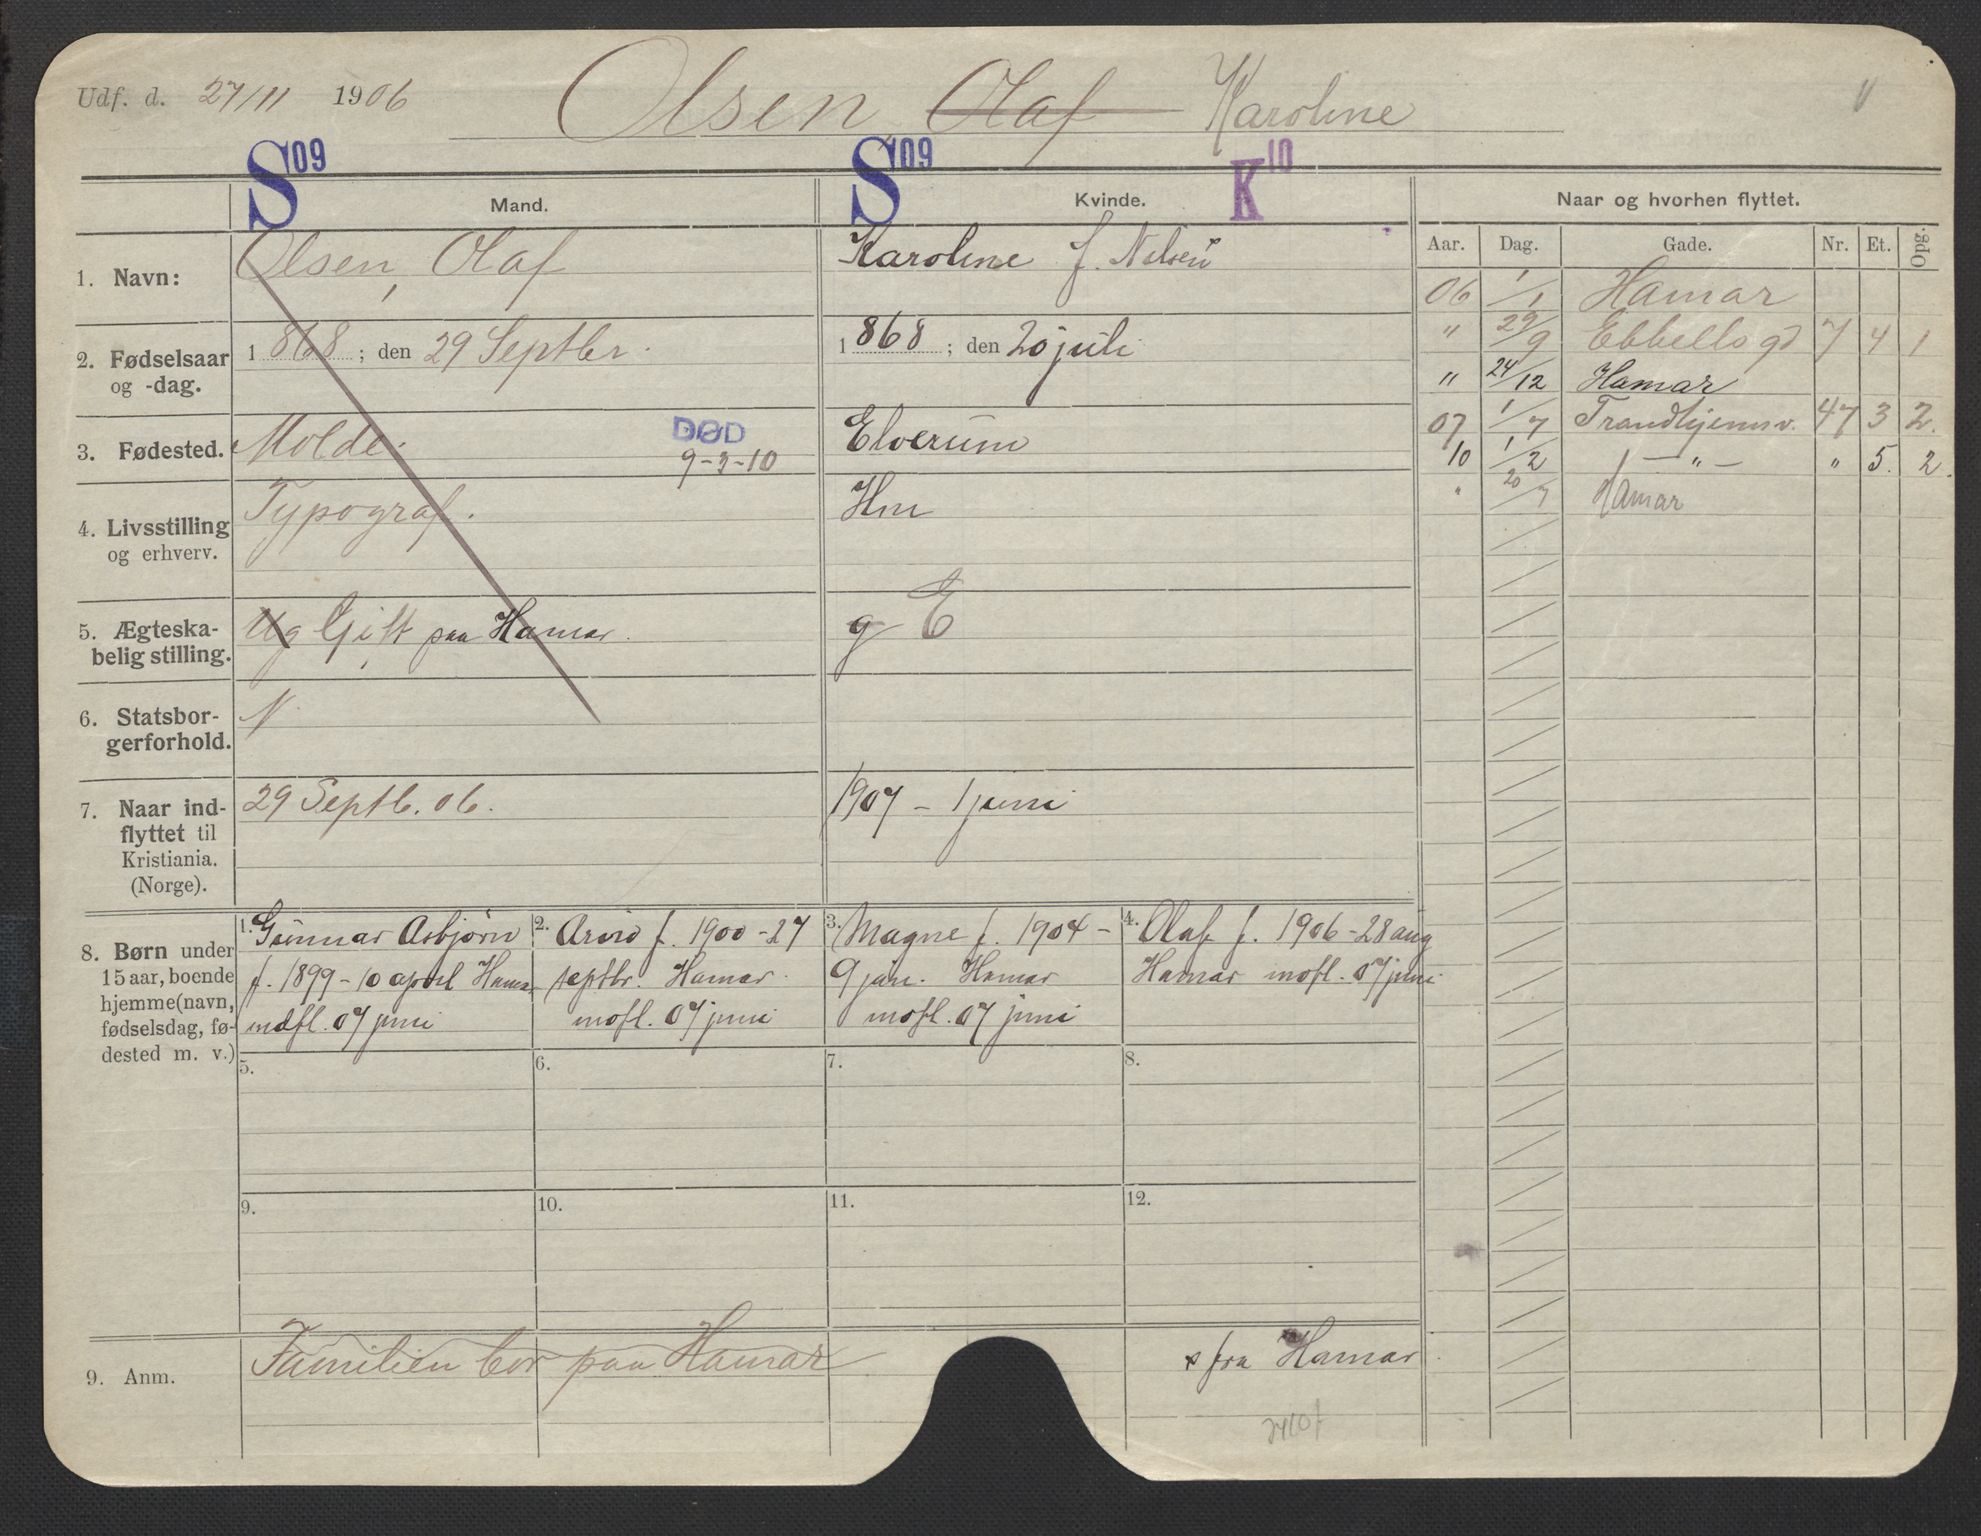 Udf. d. 27/11 1906 Olsen Olaf Karoline
S09 S09 K10
Mand. Kvinde. Naar og hvorhen flyttet.
Aar. Dag. Gade. Nr. Et. Opg.
1. Navn: Olsen, Olaf Karoline f. Nilsen
06 1/1 Hamar
2. Fødselsaar og -dag. 1868; den 29 Septbr. 1868; den 20 juli
" 29/9 Ebbells gd 7 4 1
" 24/12 Hamar
3. Fødested. Molde. DØD 9-3-10 Elverum
07 1/7 Trondhjemsv. 47 3 2.
10 1/2 — " — " 5. 2.
4. Livsstilling og erhverv. Typograf. Hm
" 20/7 Hamar
5. Ægteska-
belig stilling. Ug Gift paa Hamar. g E
6. Statsbor-
gerforhold. N.
7. Naar ind-
flyttet til
Kristiania.
(Norge). 29 Septb. 06. 1907 - 1 juni
8. Børn under
15 aar, boende
hjemme (navn,
fødselsdag, fø-
dested m. v.)
1. Gunnar Asbjørn
f. 1899 - 10 april Hamar
indfl. 07 juni
2. Arvid f. 1900 - 27
septbr. Hamar.
indfl. 07 juni
3. Magne f. 1904 -
9 jan. Hamar
indfl. 07 juni
4. Olaf f. 1906 - 28 aug
Hamar indfl. 07 juni
5. 6. 7. 8.
9. 10. 11. 12.
9. Anm. Familien bor paa Hamar fra Hamar.